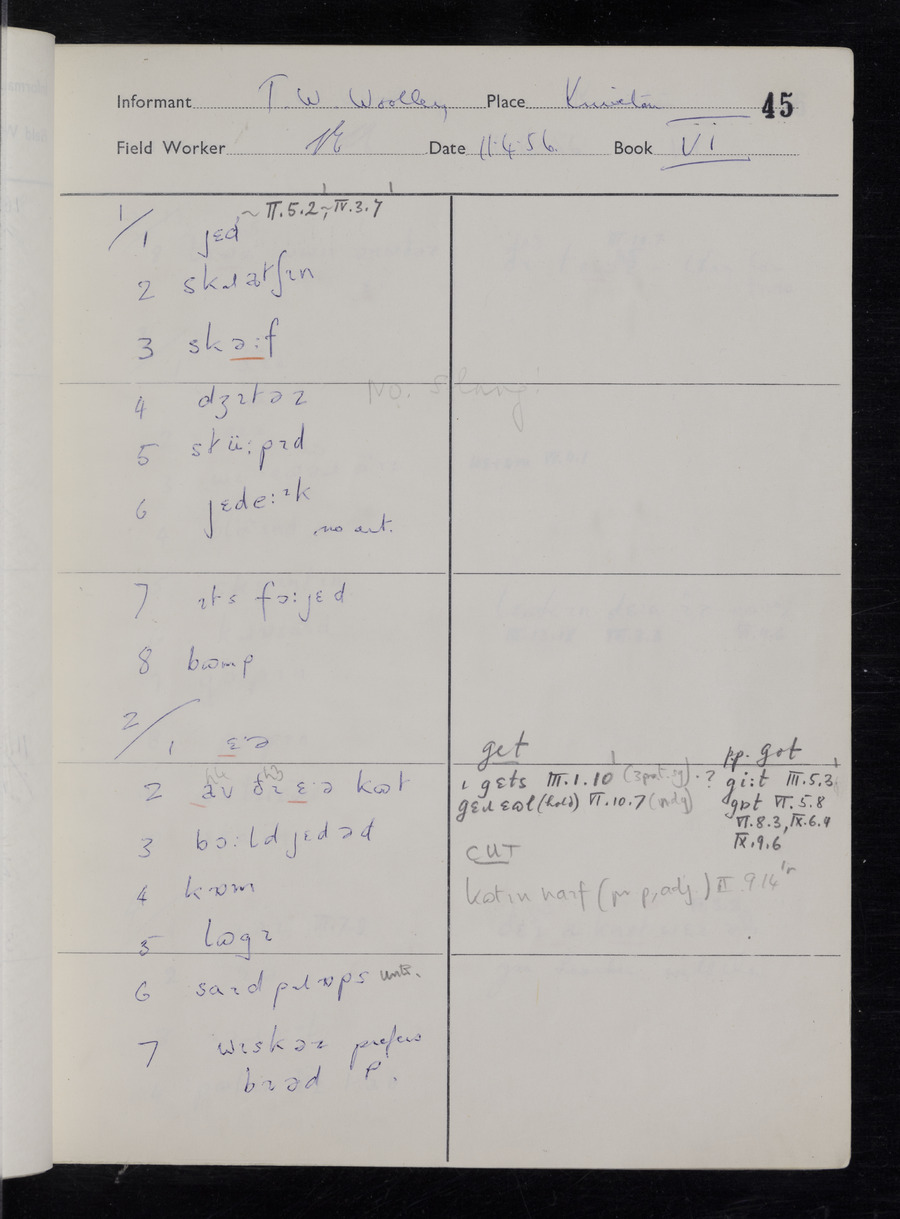 Informant T. W. Woolley Place Kniveton 45
Field Worker Date 11.4.56. Book VI
1/ 1 jɛd ~ II.5.2; ~ IV.3.7
2 skɹatʃɪn
3 skə:f
4 dʒɪtəz No. Slang!
5 stü:pɪd
6 jɛde:ɪk
no art.
7 ɪts fɔ:jɛd
8 bɷmp
2/ 1 ɛ:ə
2 av ðɪ ɛ:ə kɷt
3 bɔ:ldjɛdəd
4 kɒm
5 lɷgz
6 saɪdpɹɒps
7 wɪskəz prefers
bɪəd P.
get
gets III.1.10 (3 pr. sg) ?
gɛɹ ɛɷl (hold) VI.10.7 (indg)
pp. got
gi:t III.5.3
gɒt VI.5.8
VI.8.3, IX.6.4
IX.9.6
CUT
kɷt ɪn haɪf (pp, adj.) II.9.14